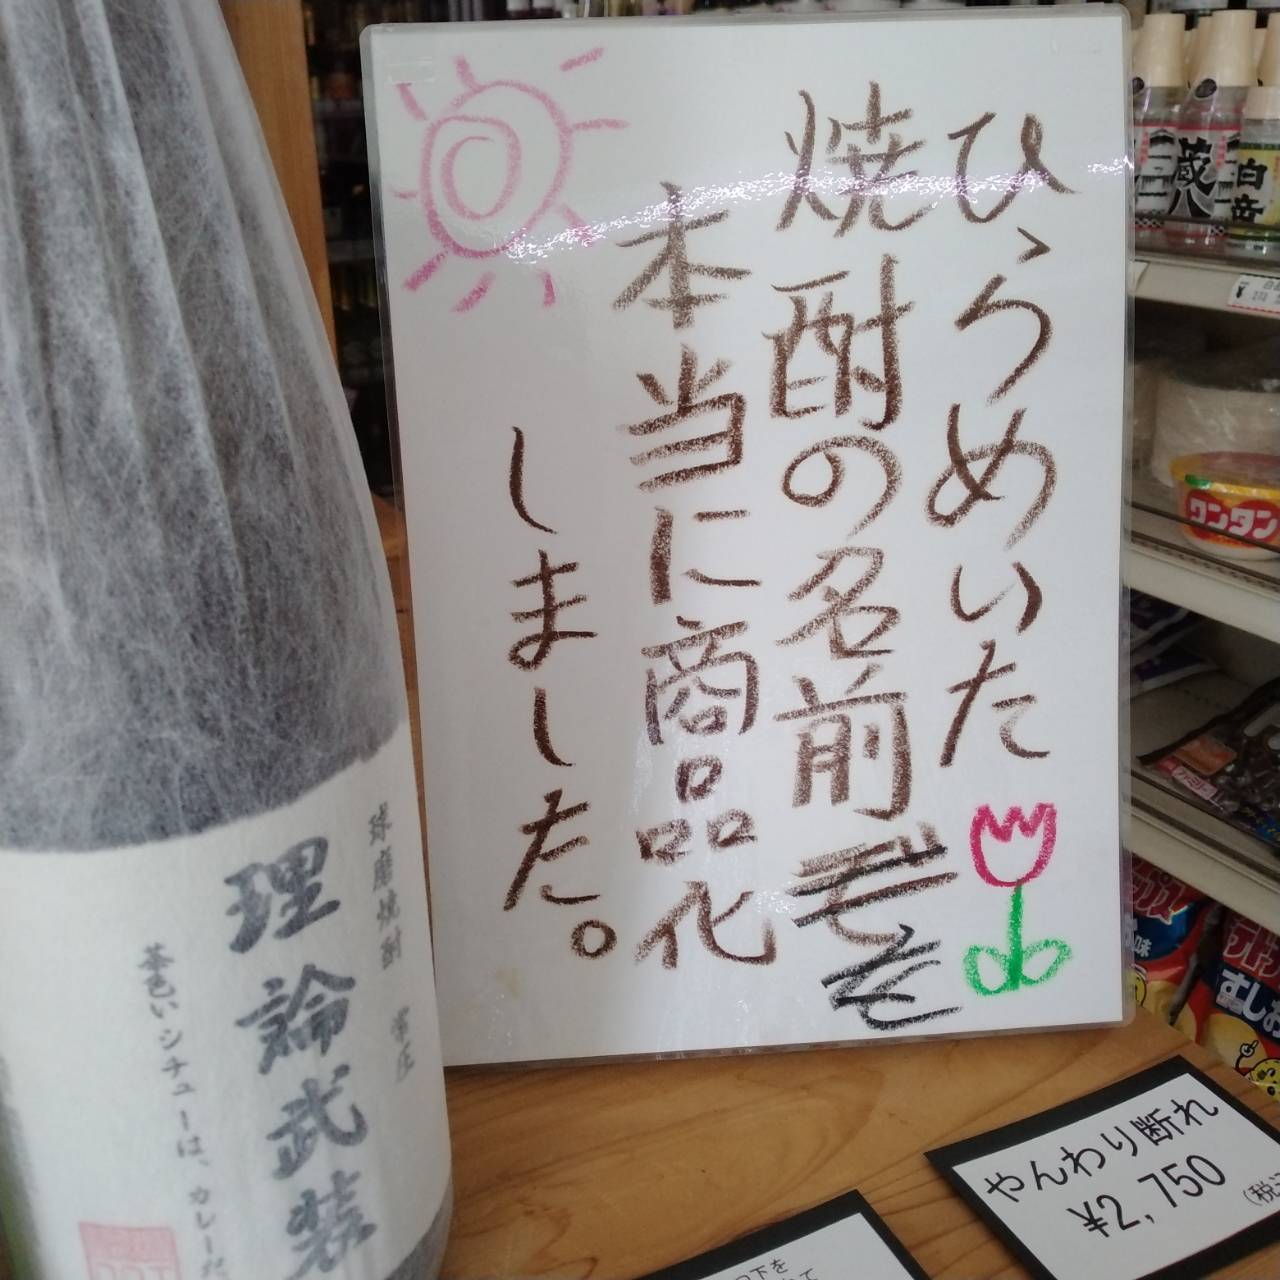 ひらめいた
焼酎の名前を
本当に商品化
しました。
球磨焼酎 常圧
理論武装
茶色いシチューは、カレーだ
やんわり断れ
¥2,750
蔵八
白岳
ワンタン
すしお